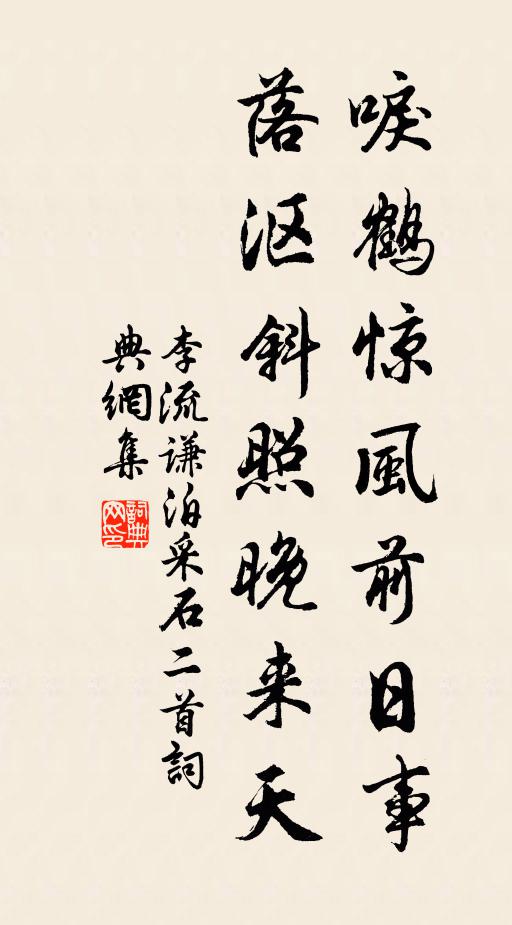 唳鶴惊風前日事
落沤斜照晚来天
李流谦泊采石二首詞
典網集
詞典网印